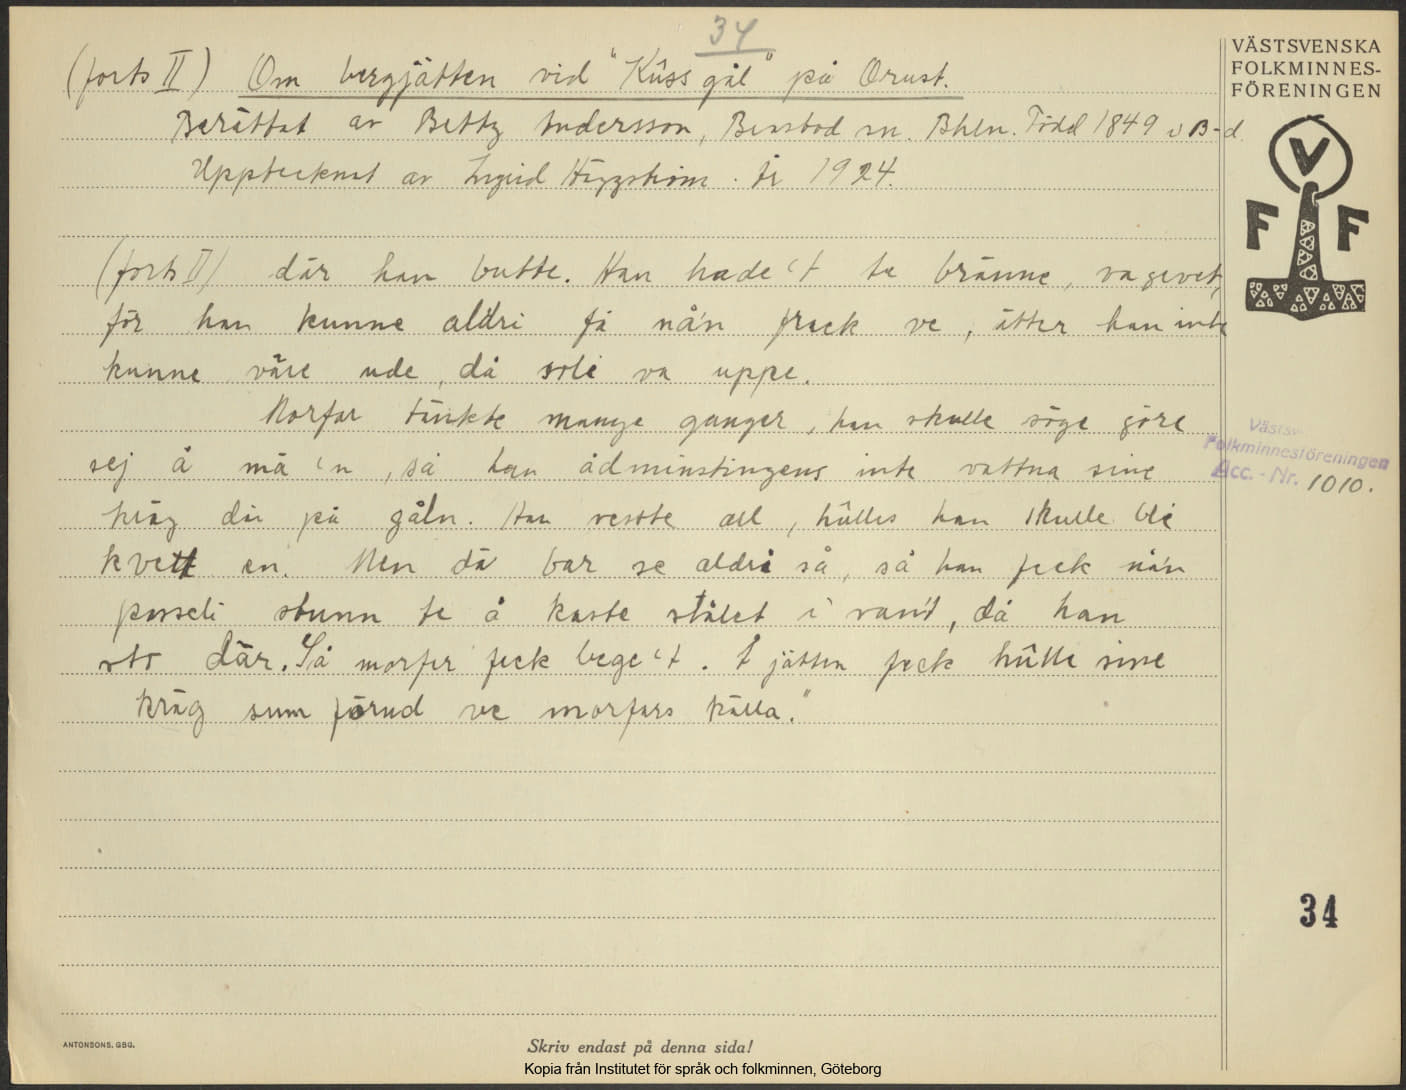 34
(forts II) Om bergjätten vid "Kûss gål" på Orust.
Berättat av Betty Andersson, Bensbod sn. Bhln. Född 1849 i B-d
Upptecknat av Ingrid Häggström. År 1924.
(forts II) där han butte. Han hade 't te bränne, va givet,
för han kunne aldri få nå'n frack ve, ätter han inte
kunne väre ude, då sole va uppe.
Morfar tänkte mange ganger, han skulle söge göre
sej å mä 'n, så han ådminstingens inte vattna sine
kräg där på gåln. Han resste all, hûlles han skulle bli
kvett en. Men dä bar se aldri så, så han feck nå'n
stunn te å kaste stålet i van't, då han
sto där. Så morfar feck bege 't. Å jätten feck hûlle sine
kräg sum förud ve morfars källa."
VÄSTSVENSKA
FOLKMINNES-
FÖRENINGEN
V
F F
Västsv
Folkminnesföreningen
Acc. - Nr. 1010.
34
ANTONSONS. GBG.
Skriv endast på denna sida!
Kopia från Institutet för språk och folkminnen, Göteborg